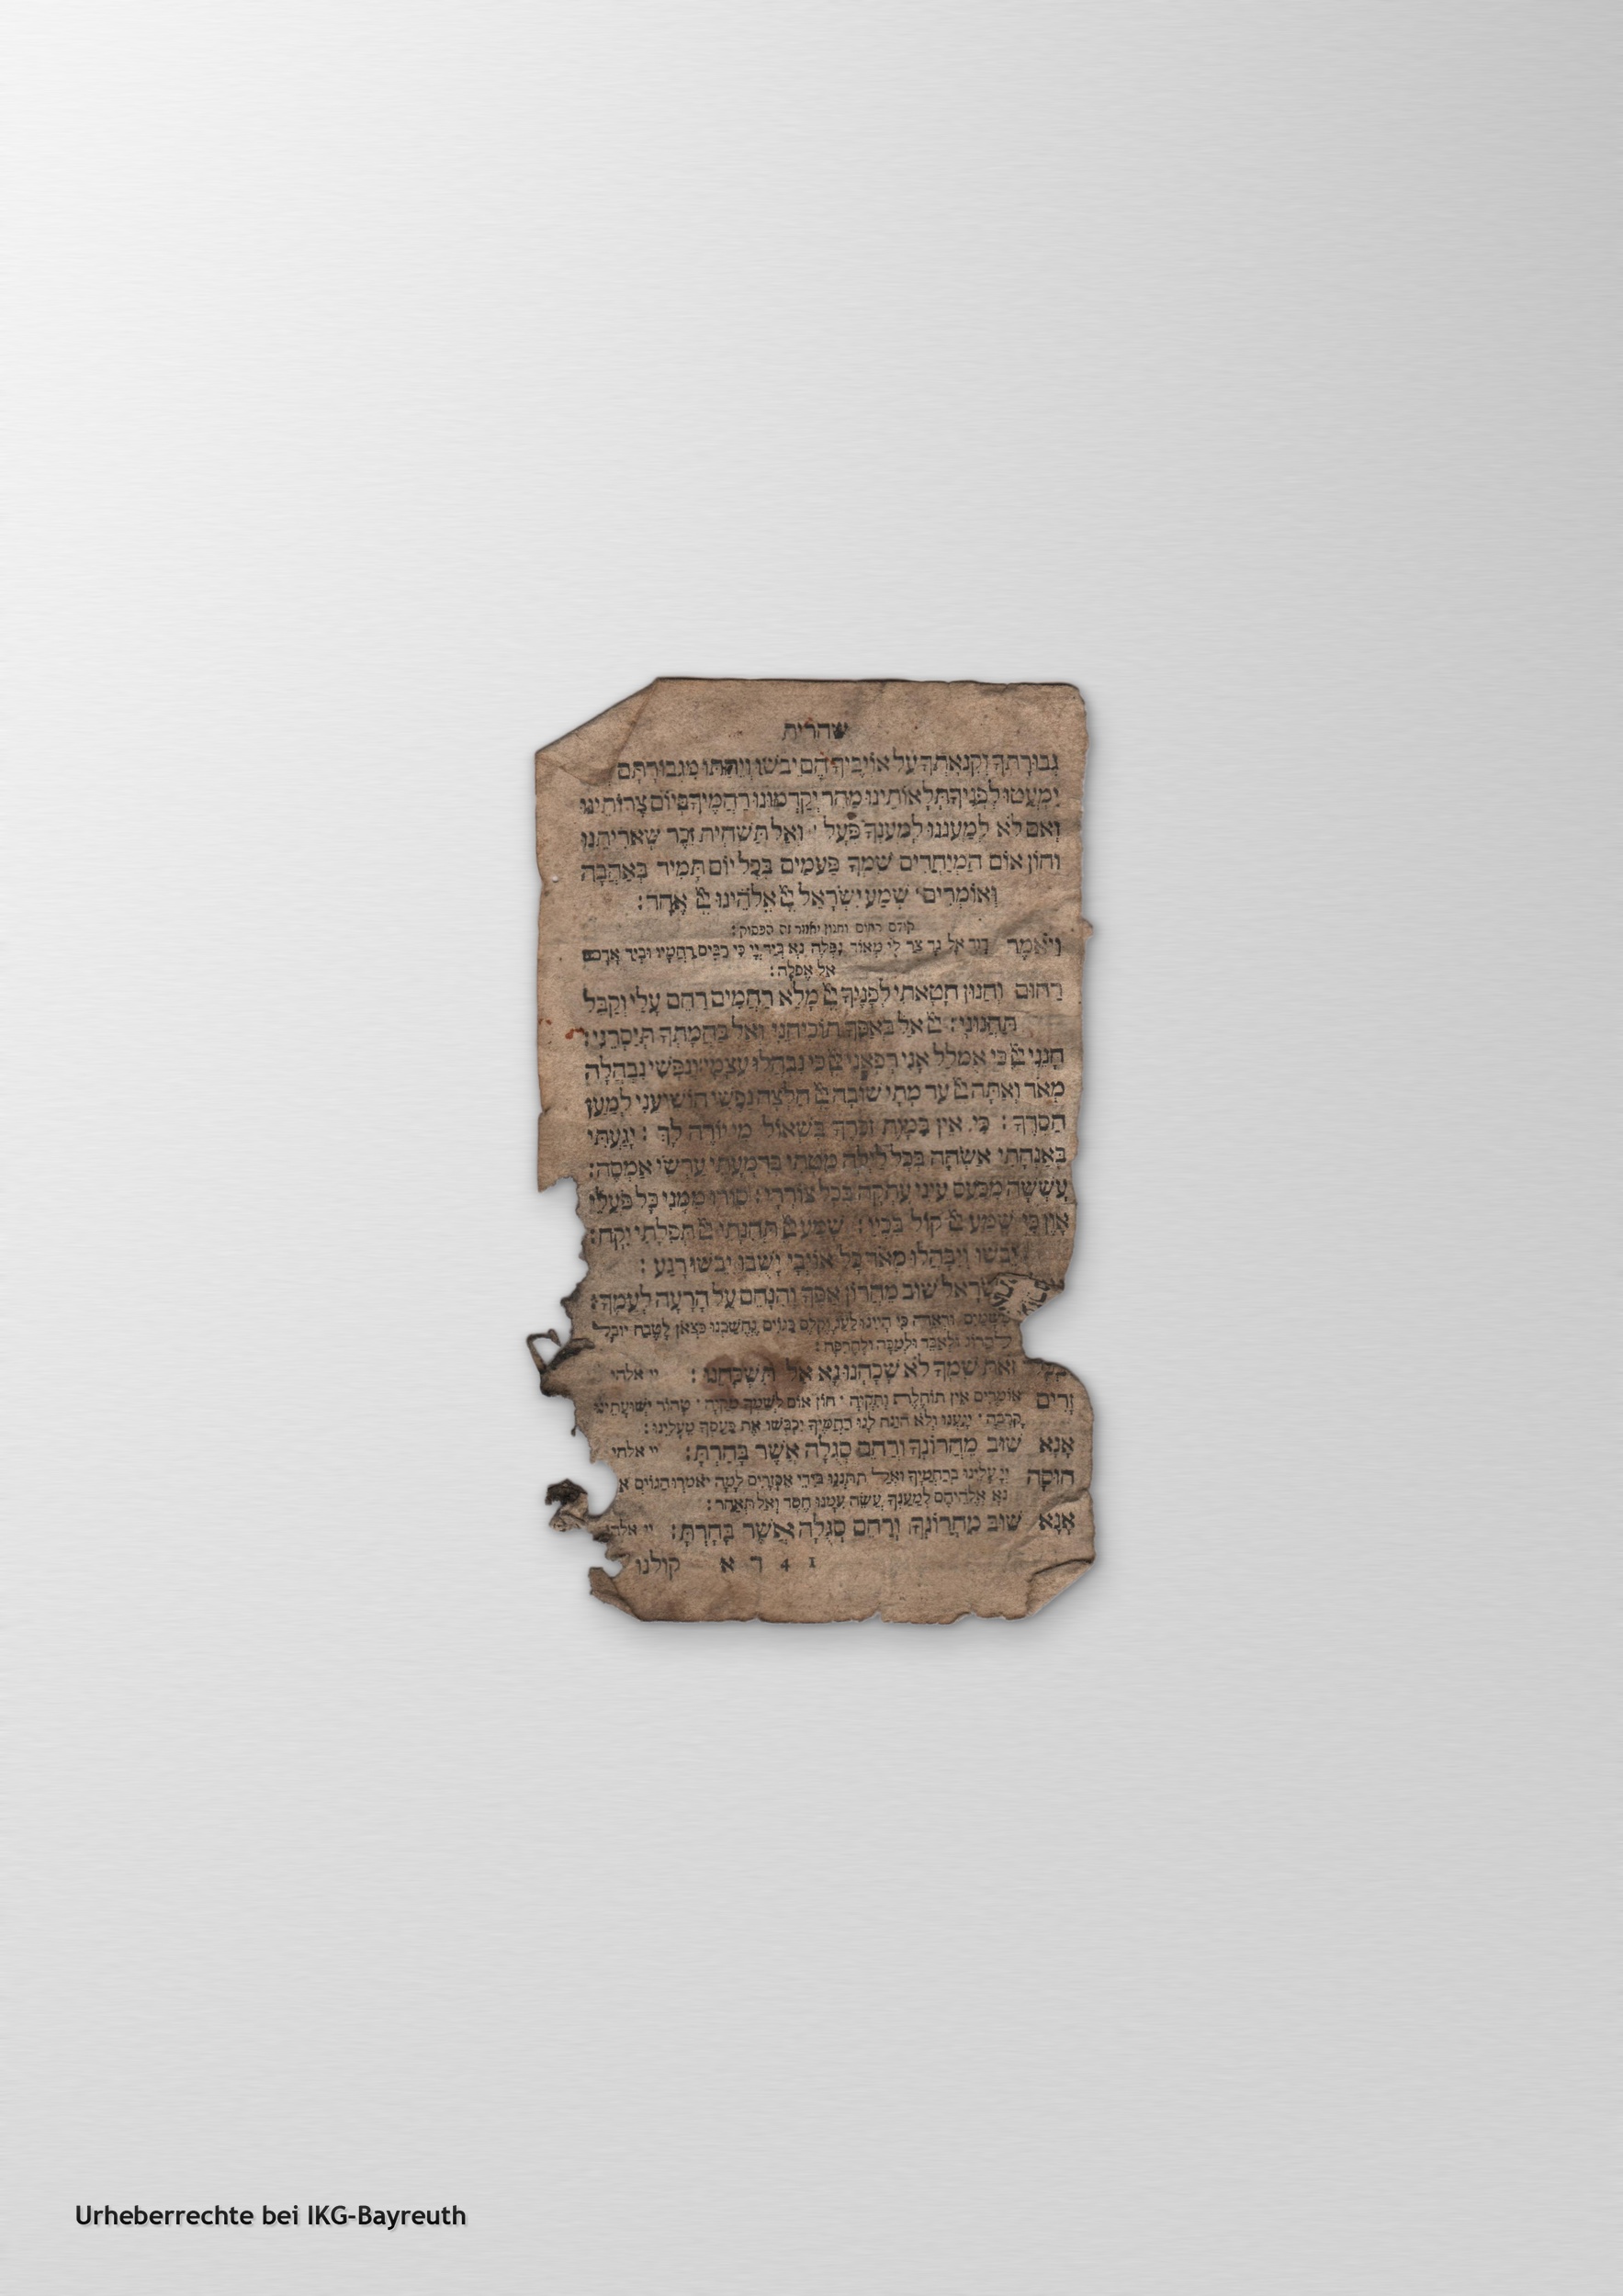 שחרית
גְבוּרָתְךָ וְקִנְאָתְךָ עַל אוֹיְבֶיךָ הֵם יֵבֹשׁוּ וְיֵחַתּוּ מִגְבוּרָתָם
יִמְעֲטוּ לְפָנֶיךָ תְּלָאוֹתֵינוּ מַהֵר יְקַדְּמוּנוּ רַחֲמֶיךָ בְּיוֹם צָרוֹתֵינוּ
וְאִם לֹא לְמַעֲנֵנוּ לְמַעַנְךָ פְּעָל ׳ וְאַל תַּשְׁחִית זֵכֶר שְׁאֵרִיתֵנוּ
וְחוֹן אוֹם הַמְיַחֲדִים שִׁמְךָ פַּעֲמַיִם בְּכָל יוֹם תָּמִיד בְּאַהֲבָה
וְאוֹמְרִים׳ שְׁמַע יִשְׂרָאֵל יְיָ אֱלֹהֵינוּ יְיָ אֶחָד :
קודם רחום וחנון יאמר זה הפסוק :
וַיֹּאמֶר דָּוִד אֶל גָּד צַר לִי מְאוֹד נִפְּלָה נָא בְיַד יְיָ כִּי רַבִּים רַחֲמָיו וּבְיַד אָדָם
אַל אֶפּלָה :
רַחוּם וְחַנּוּן חָטָאתִי לְפָנֶיךָ יְיָ מָלֵא רַחֲמִים רַחֵם עָלַי וְקַבֵּל
תַּחֲנוּנָי : יְיָ אַל בְּאַפְּךָ תוֹכִיחֵנִי וְאַל בַּחֲמָתְךָ תְיַסְּרֵנִי :
חָנֵּנִי יְיָ כִּי אֻמְלַל אָנִי רְפָאֵנִי יְיָ כִּי נִבְהֲלוּ עֲצָמָי וְנַפְשִׁי נִבְהֲלָה
מְאֹד וְאַתָּה יְיָ עַד מָתָי שׁוּבָה יְיָ חַלְּצָה נַפְשִׁי הוֹשִׁיעֵנִי לְמַעַן
חַסְדֶּךָ : כִּי אֵין בַּמָּוֶת זִכְרֶךָ בִּשְׁאוֹל מִי יוֹדֶה לָּךְ : יָגַעְתִּי
בְּאַנְחָתִי אַשְׂחֶה בְכָל לַיְלָה מִטָּתִי בְּדִמְעָתִי עַרְשִׂי אַמְסֶה :
עָשְׁשָׁה מִכַּעַס עֵינִי עָתְקָה בְּכָל צוֹרְרָי : סוּרוּ מִמֶּנִּי כָּל פֹּעֲלֵי
אָוֶן כִּי שָׁמַע יְיָ קוֹל בִּכְיִי : שָׁמַע יְיָ תְּחִנָּתִי יְיָ תְּפִלָּתִי יִקָּח :
יֵבֹשׁוּ וְיִבָּהֲלוּ מְאֹד כָּל אוֹיְבָי יָשֻׁבוּ יֵבֹשׁוּ רָגַע :
שְׂרָאֵל שׁוּב מֵחֲרוֹן אַפֶּךָ וְהִנָּחֵם עַל הָרָעָה לְעַמֶּךָ :
מִשָּׁמַיִם וּרְאֵה כִּי הָיִינוּ לַעַג וָקֶלֶס בַּגּוֹיִם נֶחְשַׁבְנוּ כְּצֹאן לַטֶּבַח יוּבָל
לַהֲרוֹג וּלְאַבֵּד וּלְמַכָּה וּלְחֶרְפָּה :
זֹאת שִׁמְךָ לֹא שָׁכָחְנוּ נָא אַל תִּשְׁכָּחֵנוּ : יי אלהי
זָרִים אוֹמְרִים אֵין תּוֹחֶלֶת וְתִקְוָה ׳ חוֹן אוֹם לְשִׁמְךָ מְקַוֶּה ׳ טָהוֹר יְשׁוּעָתֵינוּ
קָרְבָה ׳ יָגַעְנוּ וְלֹא הוּנַח לָנוּ רַחֲמֶיךָ יִכְבְּשׁוּ אֶת כַּעַסְךָ מֵעָלֵינוּ :
אָנָּא שׁוּב מֵחֲרוֹנְךָ וְרַחֵם סְגֻלָּה אֲשֶׁר בָּחָרְתָּ : יי אלהי
חוּסָה יְיָ עָלֵינוּ בְּרַחֲמֶיךָ וְאַל תִּתְּנֵנוּ בִּידֵי אַכְזָרִים לָמָּה יֹאמְרוּ הַגּוֹיִם א
נָא אֱלֹהֵיהֶם לְמַעַנְךָ עֲשֵׂה עִמָּנוּ חֶסֶד וְאַל תְּאַחַר :
אָנָּא שׁוּב מֵחֲרוֹנְךָ וְרַחֵם סְגֻלָּה אֲשֶׁר בָּחָרְתָּ : יי אלהי
1 4 ד א קולנו
Urheberrechte bei IKG-Bayreuth